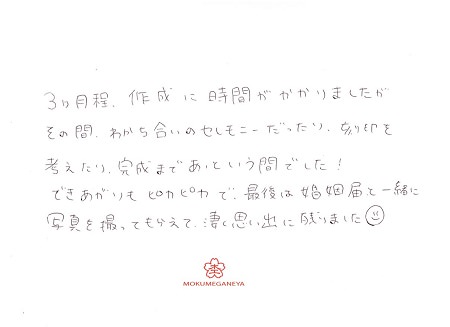 3ヶ月程、作成に時間がかかりましたが
その間、わかち合いのセレモニーだったり、刻印を
考えたり、完成まであっという間でした！
できあがりもピカピカで、最後は婚姻届と一緒に
写真を撮ってもらえて、凄く思い出に残りました
MOKUMEGANEYA